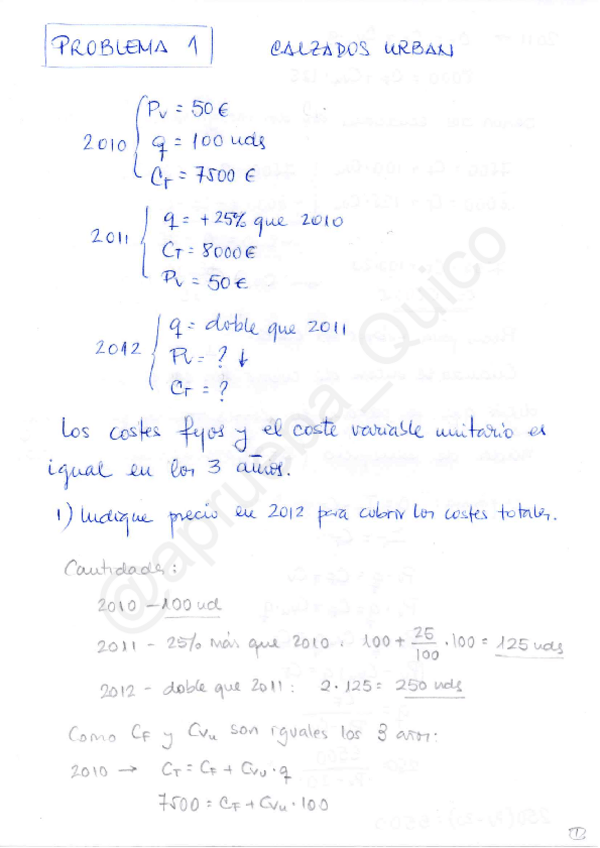 PROBLEMA 1
CALZADOS URBAN
2010
Pv = 50 €
q = 100 uds
CT = 7500 €
2011
q = +25% que 2010
CT = 8000 €
Pv = 50 €
2012
q = doble que 2011
Pv = ? ↓
CT = ?
Los costes fijos y el coste variable unitario es
igual en los 3 años.
1) Indique precio en 2012 para cubrir los costes totales.
Cantidades:
2010 - 100 ud
2011 - 25% más que 2010. 100 + 25/100 · 100 = 125 uds
2012 - doble que 2011: 2 · 125 = 250 uds
Como CF y CVu son iguales los 3 años:
2010 → CT = CF + CVu · q
7500 = CF + CVu · 100
1
@aprueba_Quico